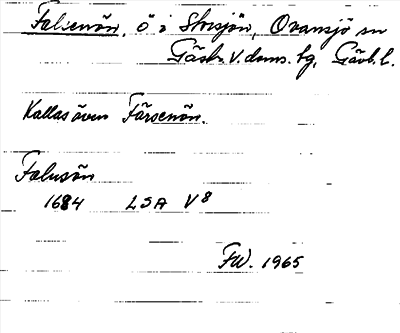 Falienön, ö i Storsjön, Ovansjö sn
Gästr. V. doms. tg, Gävb. l.
Kallas även Färsenön.
Falusön
1684 LSA V8
FW. 1965